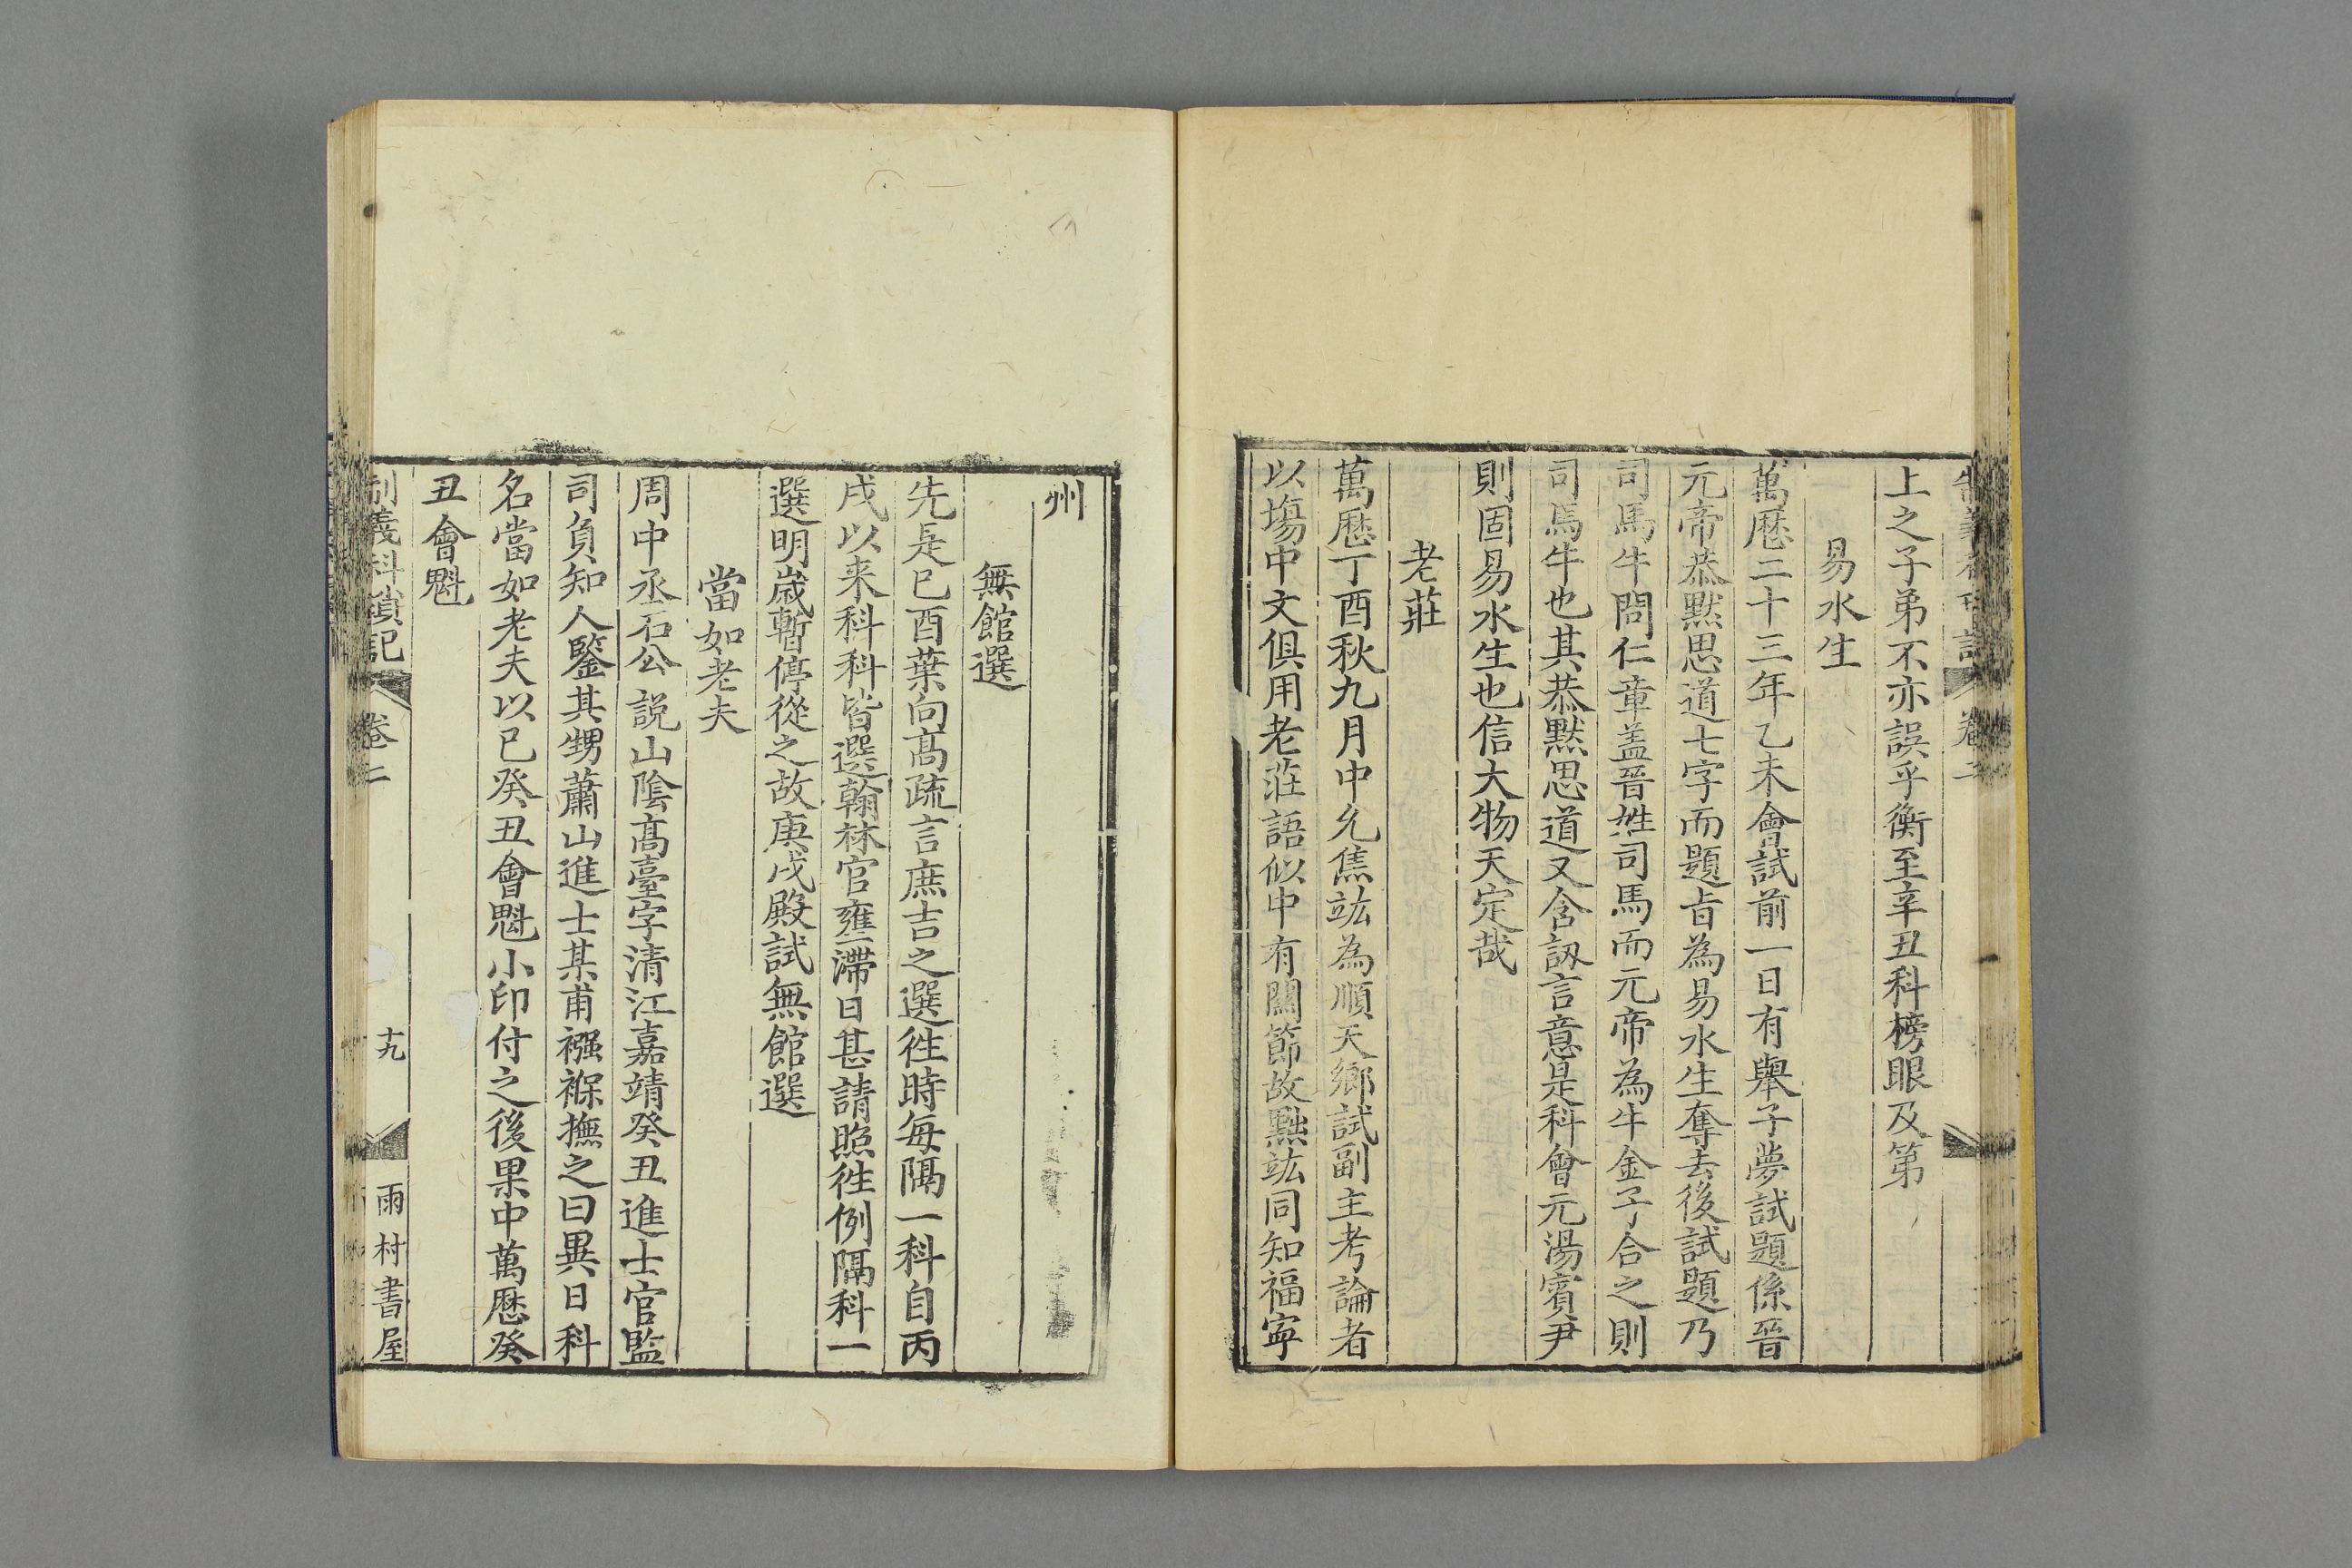 制義科瑣記 卷二
上之子弟不亦誤乎衡至辛丑科榜眼及第
易水生
萬厯二十三年乙未會試前一日有舉子夢試題係晉
元帝恭黙思道七字而題旨為易水生奪去後試題乃
司馬牛問仁章盖晉姓司馬而元帝為牛金子合之則
司馬牛也其恭黙思道又含訒言意是科會元湯賓尹
則固易水生也信大物天定哉
老莊
萬厯丁酉秋九月中允焦竑為順天鄉試副主考論者
以塲中文俱用老莊語似中有關節故黜竑同知福寕
州
無館選
先是已酉葉向髙疏言庶吉之選徃時每隔一科自丙
戌以来科科皆選翰林官壅滯日甚請照徃例隔科一
選明嵗暫停從之故庚戌殿試無館選
當如老夫
周中丞石公説山陰髙臺字清江嘉靖癸丑進士官監
司負知人鑒其甥蕭山進士某甫襁褓撫之曰異日科
名當如老夫以已癸丑會魁小印付之後果中萬厯癸
丑會魁
制義科瑣記 卷二 十九 雨村書屋